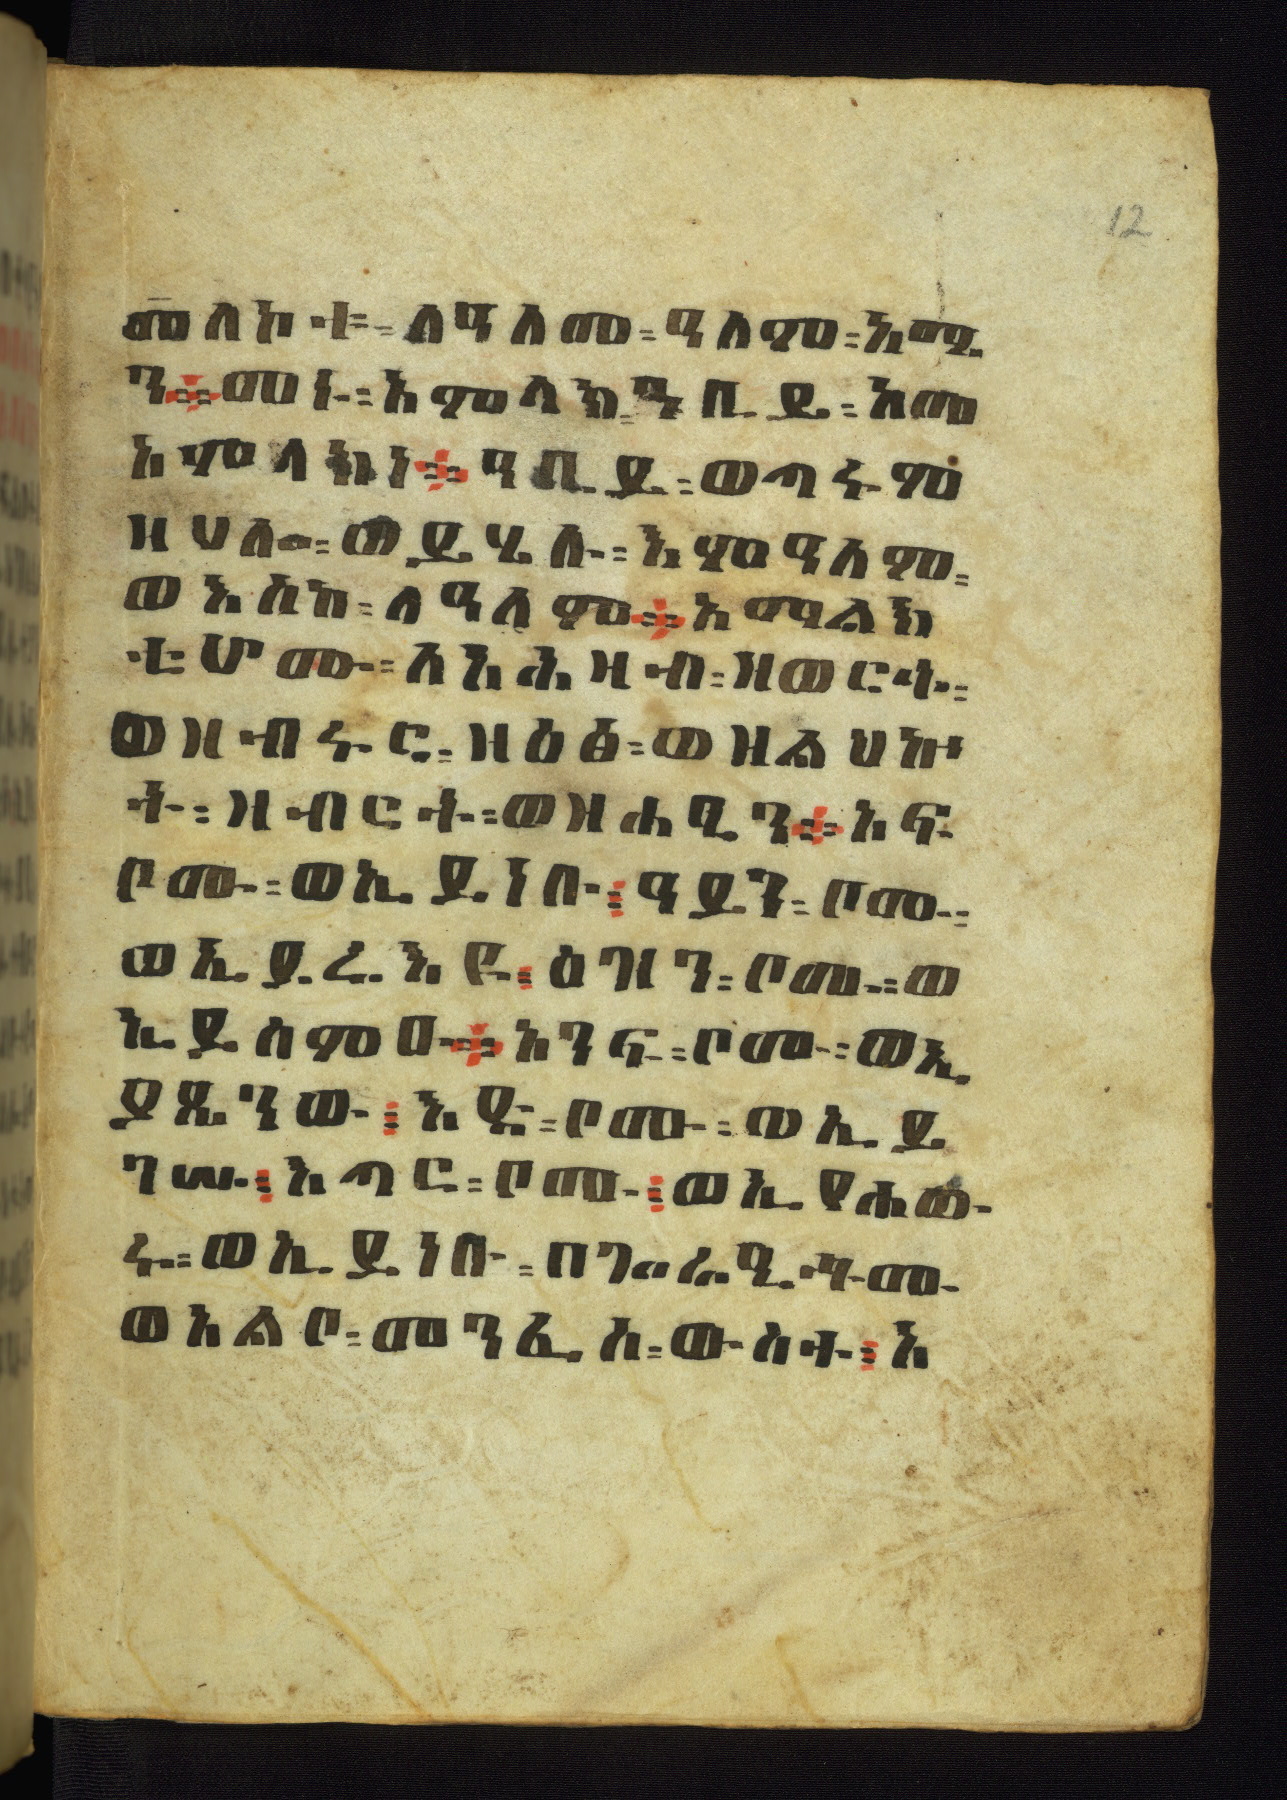 12
መለኮት፡ ለዓለመ፡ ዓለም፡ አሜ
ን። መኑ፡ አምላክ፡ ዓቢይ፡ ከመ
አምላክነ። ዓቢይ፡ ወጣሩም
ዘሀሎ፡ ወይሄሉ፡ እምዓለም፡
ወእስከ፡ ለዓለም። አማልክ
ቲሆሙ፡ ለአሕዛብ፡ ዘወርቅ፡
ወዘብሩር፡ ዘዕፅ፡ ወዘልህኵ
ት፡ ዘብርት፡ ወዘሐፂን። አፍ
ቦሙ፡ ወኢይነቡ፤ ዓይን፡ ቦሙ፡
ወኢይሬእዩ፤ ዕዝን፡ ቦሙ፡ ወ
ኢይሰምዑ። አንፍ፡ ቦሙ፡ ወኢ
ያጼንዉ፤ እድ፡ ቦሙ፡ ወኢይ
ገሡ፤ እግር፡ ቦሙ፤ ወኢየሐው
ሩ፡ ወኢይነቡ፡ በጐራዒቶሙ
ወአልቦ፡ መንፈሰ፡ ውስተ፤ አ